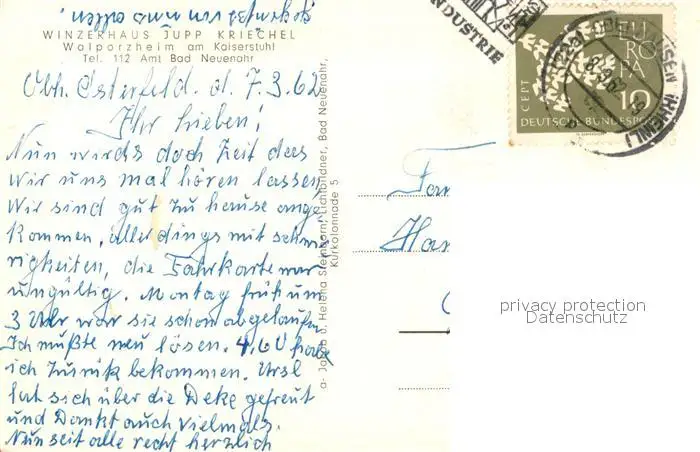 WINZERHAUS JUPP KRIECHEL
Walporzheim am Kaiserstuhl
Tel. 112 Amt Bad Neuenahr
Obh. Osterfeld. d. 7.3.62
Ihr Lieben!
Nun wirds doch Zeit das
wir uns mal hören lassen,
Wir sind gut zu hause ange
kommen, allerdings mit schwie
rigkeiten, die Fahrkarte war
ungültig. Montag früh um
3 Uhr war sie schon abgelaufen
Ich mußte neu lösen. 4.60 habe
ich zurük bekommen. Ursl
hat sich über die Deke gefreut
und Dankt auch vielmals.
Nun seit alle recht herzlich
gegrüßt von
Jakob u. Helena Steinborn, Lichtbildner, Bad Neuenahr,
Kurkolonnade 5
INDUSTRIE
OBERHAUSEN (RHEINL)
EUROPA
CEPT
10
DEUTSCHE BUNDESPOST
Fam
Han
privacy protection
Datenschutz